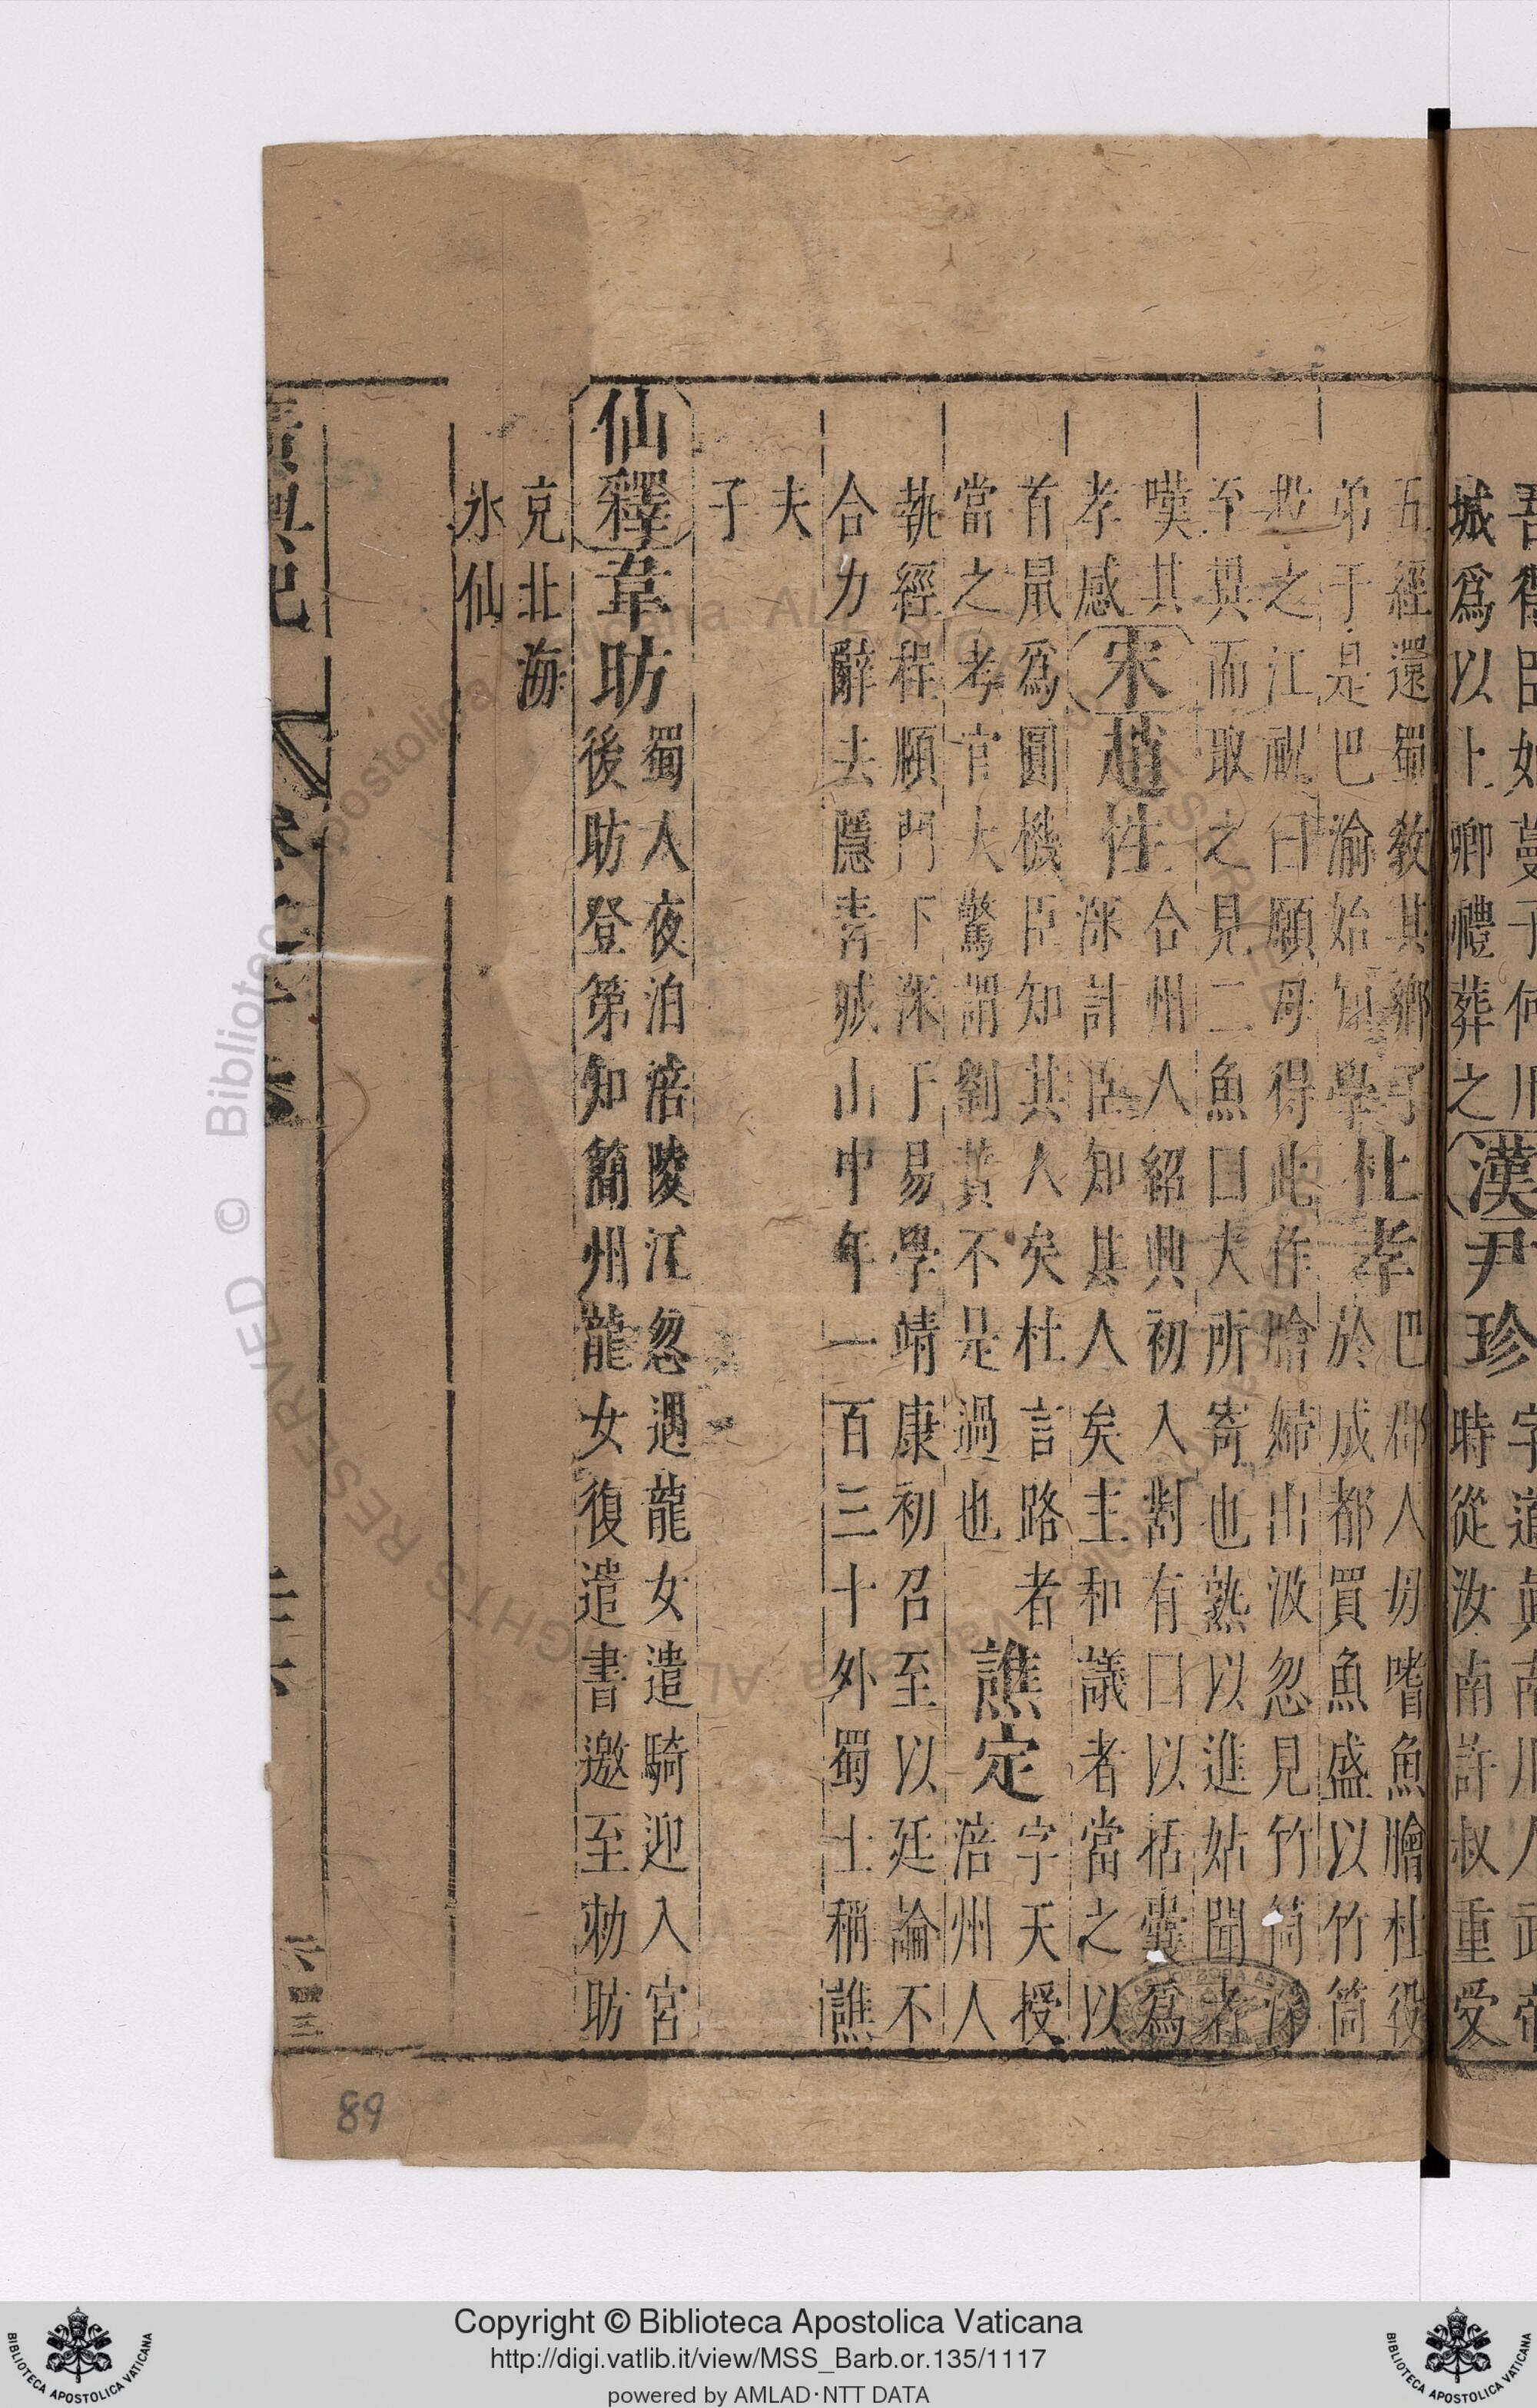 城爲以上卿禮葬之
漢
尹珍
時從汝南許叔重受
五經還蜀教其鄉子
弟于是巴渝始知學
杜孝
巴郡人母嗜魚膾杜役
於成都買魚盛以竹筒
投之江祝曰願母得此作膾婦出汲忽見竹筒
至異而取之見二魚曰夫所寄也熟以進姑聞者
嘆其
孝感
宋
趙性
合州人紹興初入對有曰以括囊爲
深計臣知其人矣主和議者當之以
首鼠爲圓機臣知其人矣杜言路者
當之考官大驚謂劉蕡不是過也
譙定
字天授
涪州人
執經程頤門下深于易學靖康初召至以廷論不
合力辭去隱青城山中年一百三十外蜀士稱譙
夫
子
仙釋
韋昉
蜀人夜泊涪陵江忽遇龍女遣騎迎入宮
後昉登第知簡州龍女復遣書邀至勅昉
克北海
水仙
89
Copyright © Biblioteca Apostolica Vaticana
http://digi.vatlib.it/view/MSS_Barb.or.135/1117
powered by AMLAD·NTT DATA